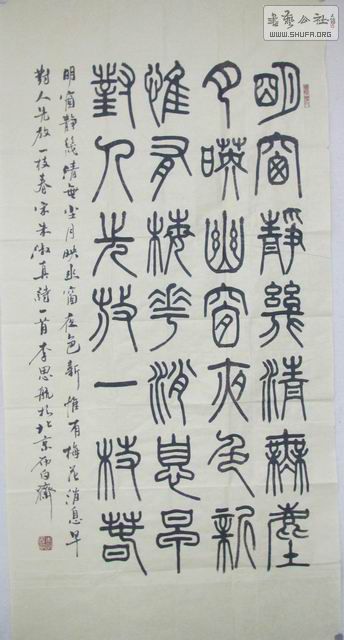 書藝公社
WWW.SHUFA.ORG
明窗靜幾清無塵
月暎幽窗夜色新
惟有梅花消息早
對人先放一枝春
明窗靜幾清無尘月映幽窗夜色新惟有梅花消息早
對人先放一枝春宋朱淑真詩一首李思航於北京白齋